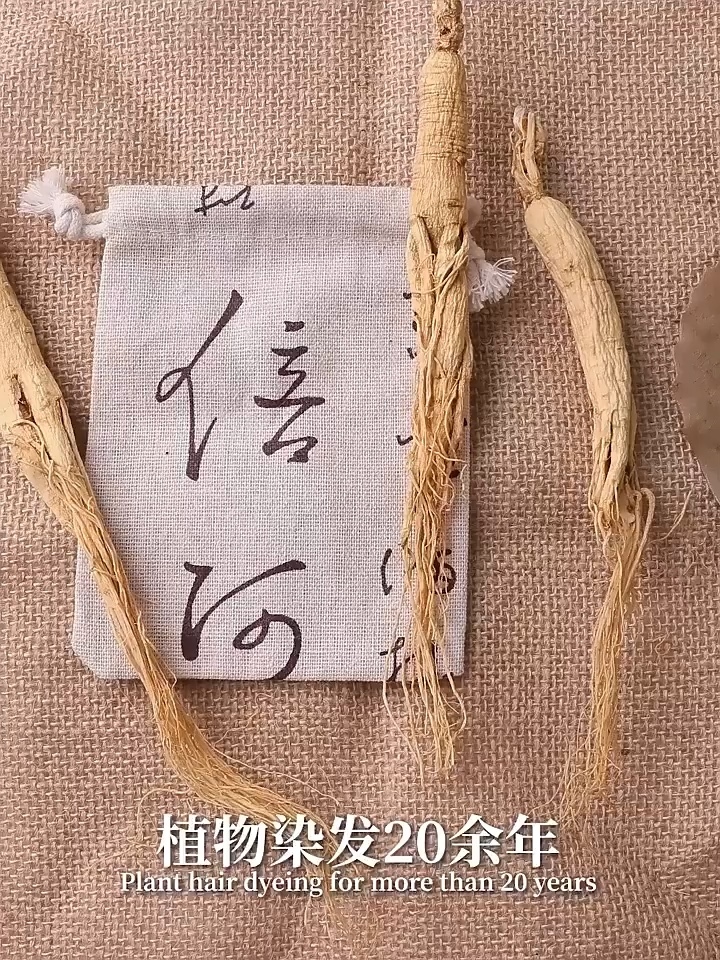 信
阿
植物染发20余年
Plant hair dyeing for more than 20 years